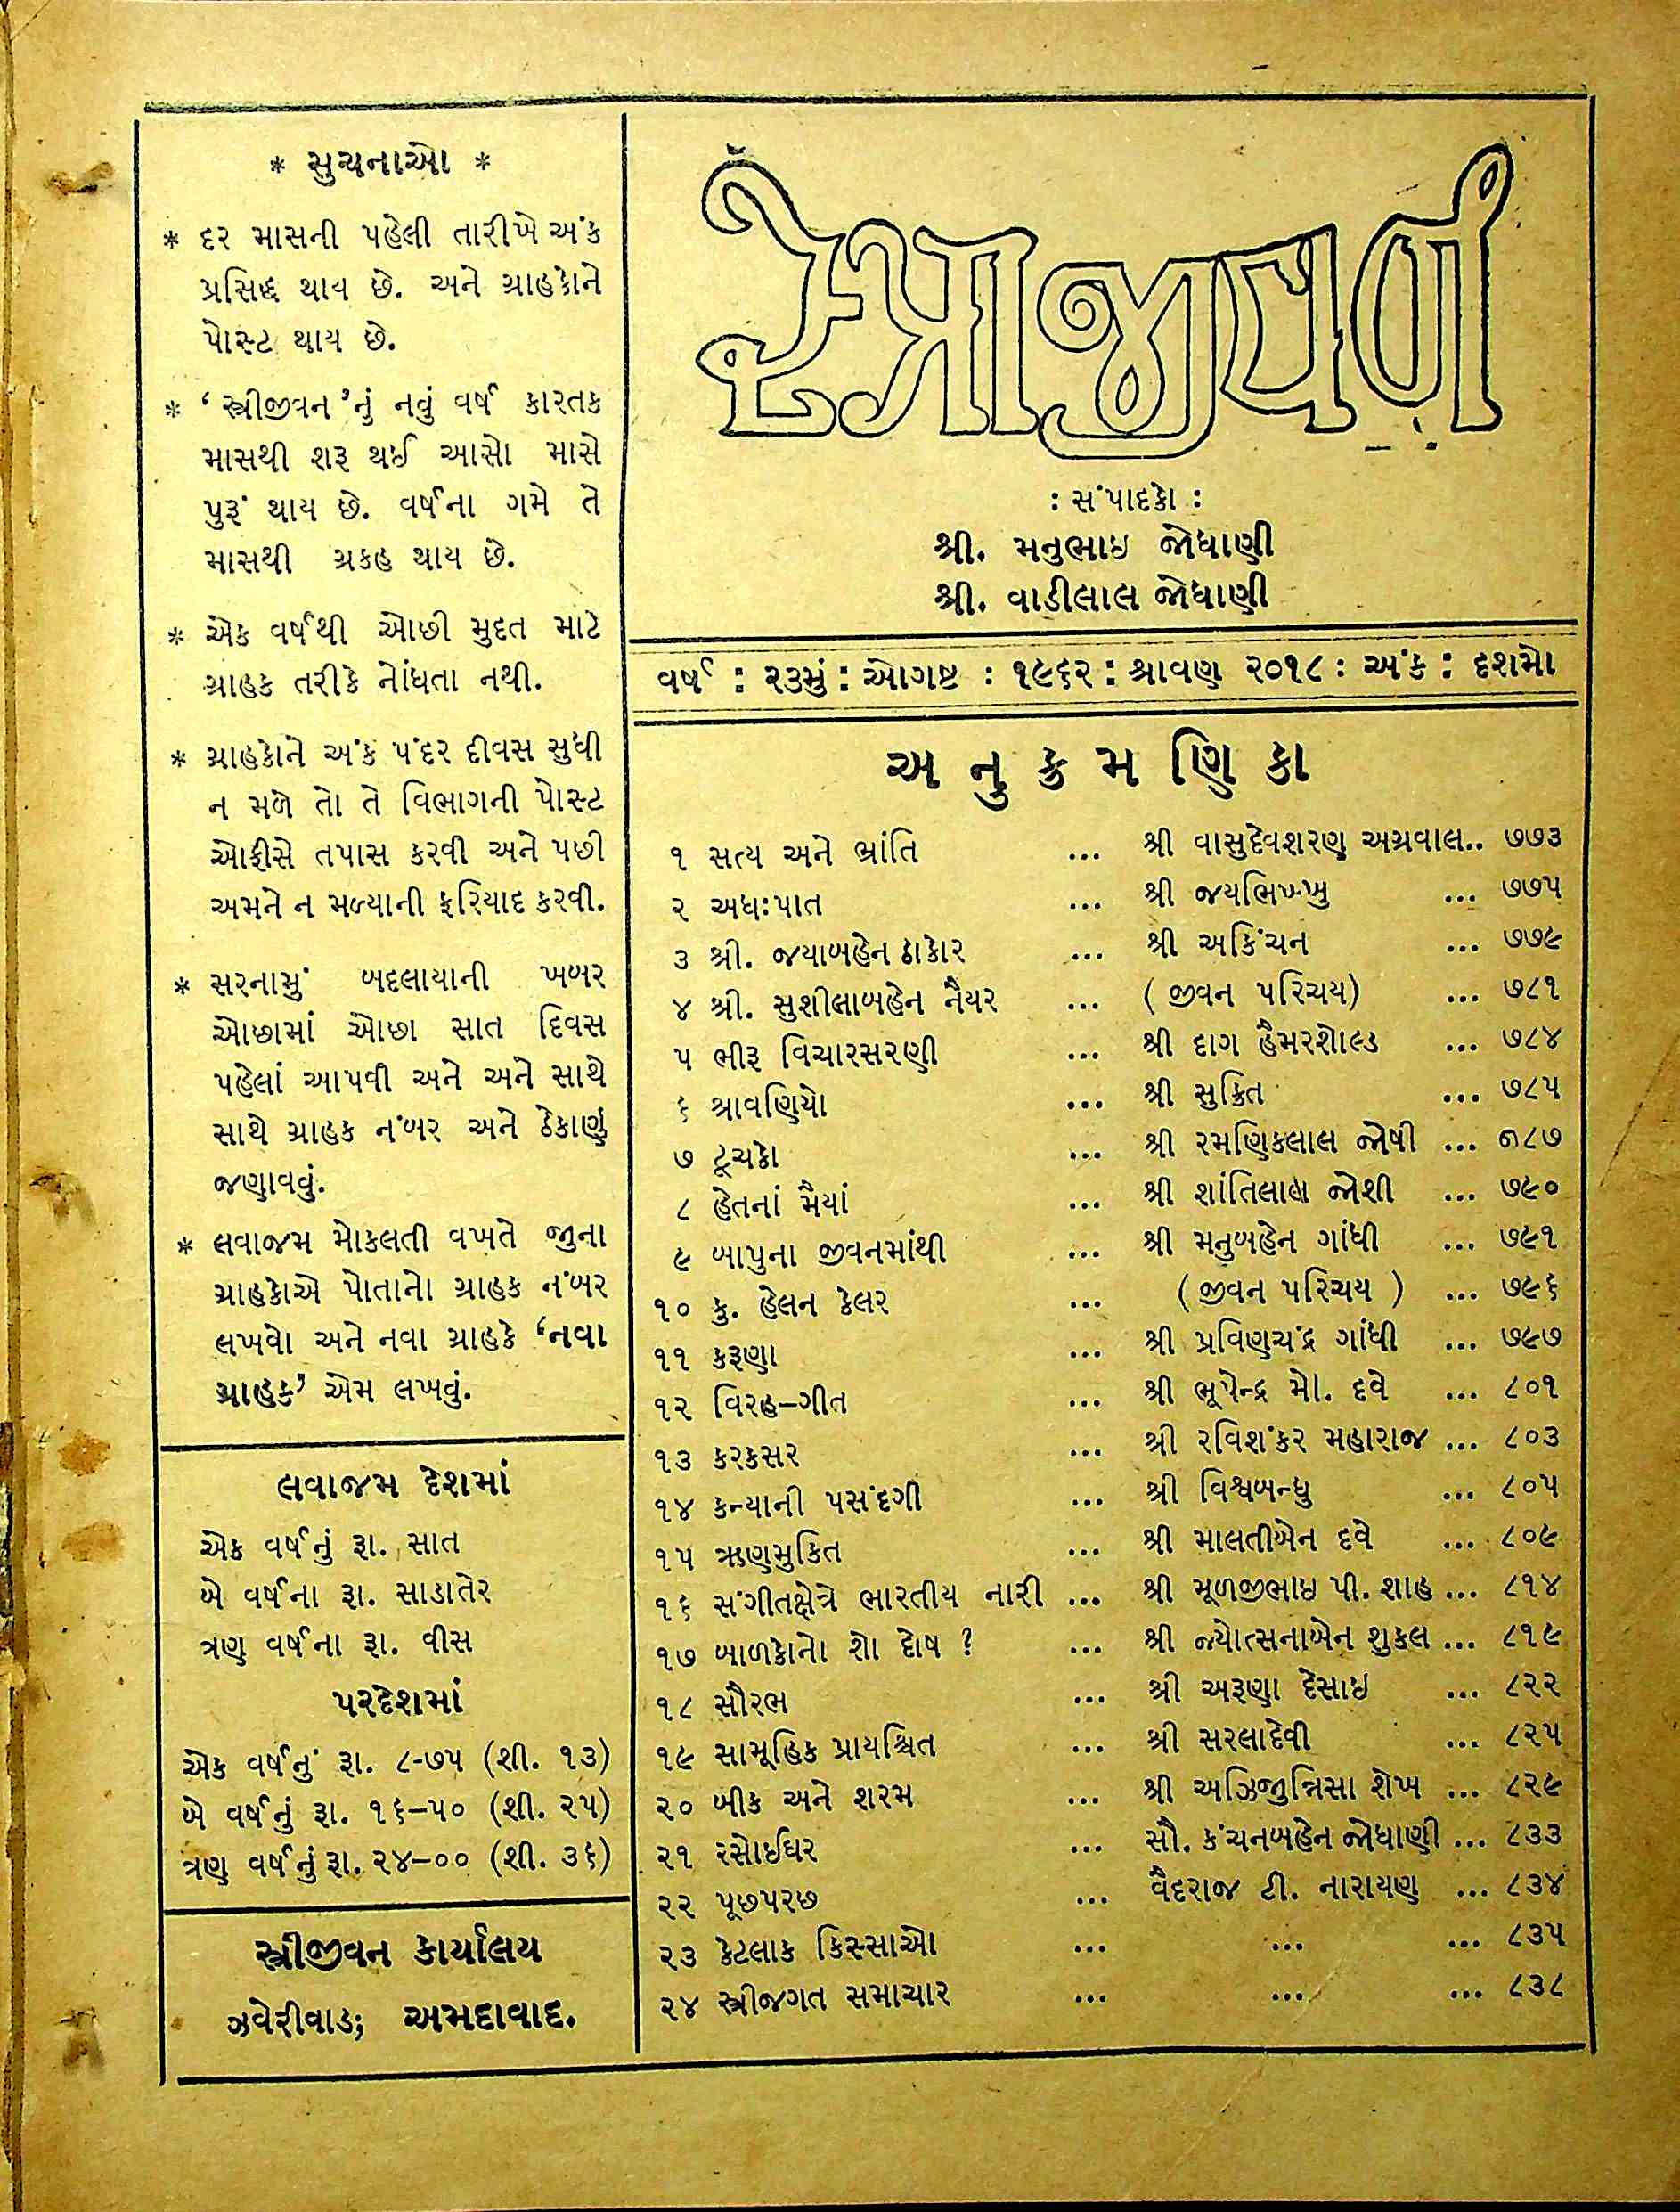 * સુચનાઓ *
* દર માસની પહેલી તારીખે અંક
પ્રસિદ્ધ થાય છે. અને ગ્રાહકોને
પોસ્ટ થાય છે.
* ‘સ્ત્રીજીવન’નું નવું વર્ષ કારતક
માસથી શરૂ થઈ આસો માસે
પુરૂં થાય છે. વર્ષના ગમે તે
માસથી ગ્રકહ થાય છે.
* એક વર્ષથી ઓછી મુદત માટે
ગ્રાહક તરીકે નોંધતા નથી.
* ગ્રાહકોને અંક પંદર દીવસ સુધી
ન મળે તો તે વિભાગની પોસ્ટ
ઓફીસે તપાસ કરવી અને પછી
અમને ન મળ્યાની ફરિયાદ કરવી.
* સરનામું બદલાયાની ખબર
ઓછામાં ઓછા સાત દિવસ
પહેલાં આપવી અને અને સાથે
સાથે ગ્રાહક નંબર અને ઠેકાણું
જણાવવું.
* લવાજમ મોકલતી વખતે જુના
ગ્રાહકોએ પોતાનો ગ્રાહક નંબર
લખવો અને નવા ગ્રાહકે ‘નવા
ગ્રાહક’ એમ લખવું.
લવાજમ દેશમાં
એક વર્ષનું રૂા. સાત
બે વર્ષના રૂા. સાડાતેર
ત્રણ વર્ષના રૂા. વીસ
પરદેશમાં
એક વર્ષનું રૂા. ૮-૭૫ (શી. ૧૩)
બે વર્ષનું રૂા. ૧૬–૫૦ (શી. ૨૫)
ત્રણ વર્ષનું રૂા. ૨૪–૦૦ (શી. ૩૬)
સ્ત્રીજીવન કાર્યાલય
ઝવેરીવાડ; અમદાવાદ.
સ્ત્રીજીવન
: સંપાદકો :
શ્રી. મનુભાઇ જોધાણી
શ્રી. વાડીલાલ જોધાણી
વર્ષ : ૨૩મું : ઓગષ્ટ : ૧૯૬૨ : શ્રાવણ ૨૦૧૮ : અંક : દશમો
અ નુ ક્ર મ ણિ કા
૧ સત્ય અને ભ્રાંતિ ... શ્રી વાસુદેવશરણ અગ્રવાલ.. ૭૭૩
૨ અધઃપાત ... શ્રી જયભિખ્ખુ ... ૭૭૫
૩ શ્રી. જયાબહેન ઠાકોર ... શ્રી અકિંચન ... ૭૭૯
૪ શ્રી. સુશીલાબહેન નૈયર ... (જીવન પરિચય) ... ૭૮૧
૫ ભીરૂ વિચારસરણી ... શ્રી દાગ હૈમરશોલ્ડ ... ૭૮૪
૬ શ્રાવણિયો ... શ્રી સુક્રિત ... ૭૮૫
૭ ટૂચકો ... શ્રી રમણિકલાલ જોષી ... ૭૮૭
૮ હેતનાં મૈયાં ... શ્રી શાંતિલાલ જોશી ... ૭૯૦
૯ બાપુના જીવનમાંથી ... શ્રી મનુબહેન ગાંધી ... ૭૯૧
૧૦ કુ. હેલન કેલર ... (જીવન પરિચય) ... ૭૯૬
૧૧ કરૂણા ... શ્રી પ્રવિણચંદ્ર ગાંધી ... ૭૯૭
૧૨ વિરહ–ગીત ... શ્રી ભૂપેન્દ્ર મો. દવે ... ૮૦૧
૧૩ કરકસર ... શ્રી રવિશંકર મહારાજ ... ૮૦૩
૧૪ કન્યાની પસંદગી ... શ્રી વિશ્વબન્ધુ ... ૮૦૫
૧૫ ઋણમુકિત ... શ્રી માલતીબેન દવે ... ૮૦૯
૧૬ સંગીતક્ષેત્રે ભારતીય નારી ... શ્રી મૂળજીભાઇ પી. શાહ ... ૮૧૪
૧૭ બાળકોનો શો દોષ ? ... શ્રી જ્યોત્સનાબેન શુકલ ... ૮૧૯
૧૮ સૌરભ ... શ્રી અરૂણા દેસાઇ ... ૮૨૨
૧૯ સામૂહિક પ્રાયશ્ચિત ... શ્રી સરલાદેવી ... ૮૨૫
૨૦ બીક અને શરમ ... શ્રી અઝિજુન્નિસા શેખ ... ૮૨૯
૨૧ રસોઈઘર ... સૌ. કંચનબહેન જોધાણી ... ૮૩૩
૨૨ પૂછપરછ ... વૈદરાજ ટી. નારાયણ ... ૮૩૪
૨૩ કેટલાક કિસ્સાઓ ... ... ... ૮૩૫
૨૪ સ્ત્રીજગત સમાચાર ... ... ... ૮૩૮